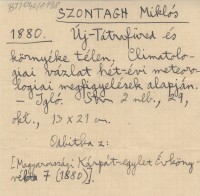 SZONTAGH Miklós
1880. Új-Tátrafüred és
környéke télen, Climatolo-
giai vázlat hét-évi meteoro-
logiai megfigyelések alapján.
— Igló. 2 nlb., 29,
okt., 13 x 21 cm.
[Magyarországi Kárpát-egylet Évköny-
7 (1880)].